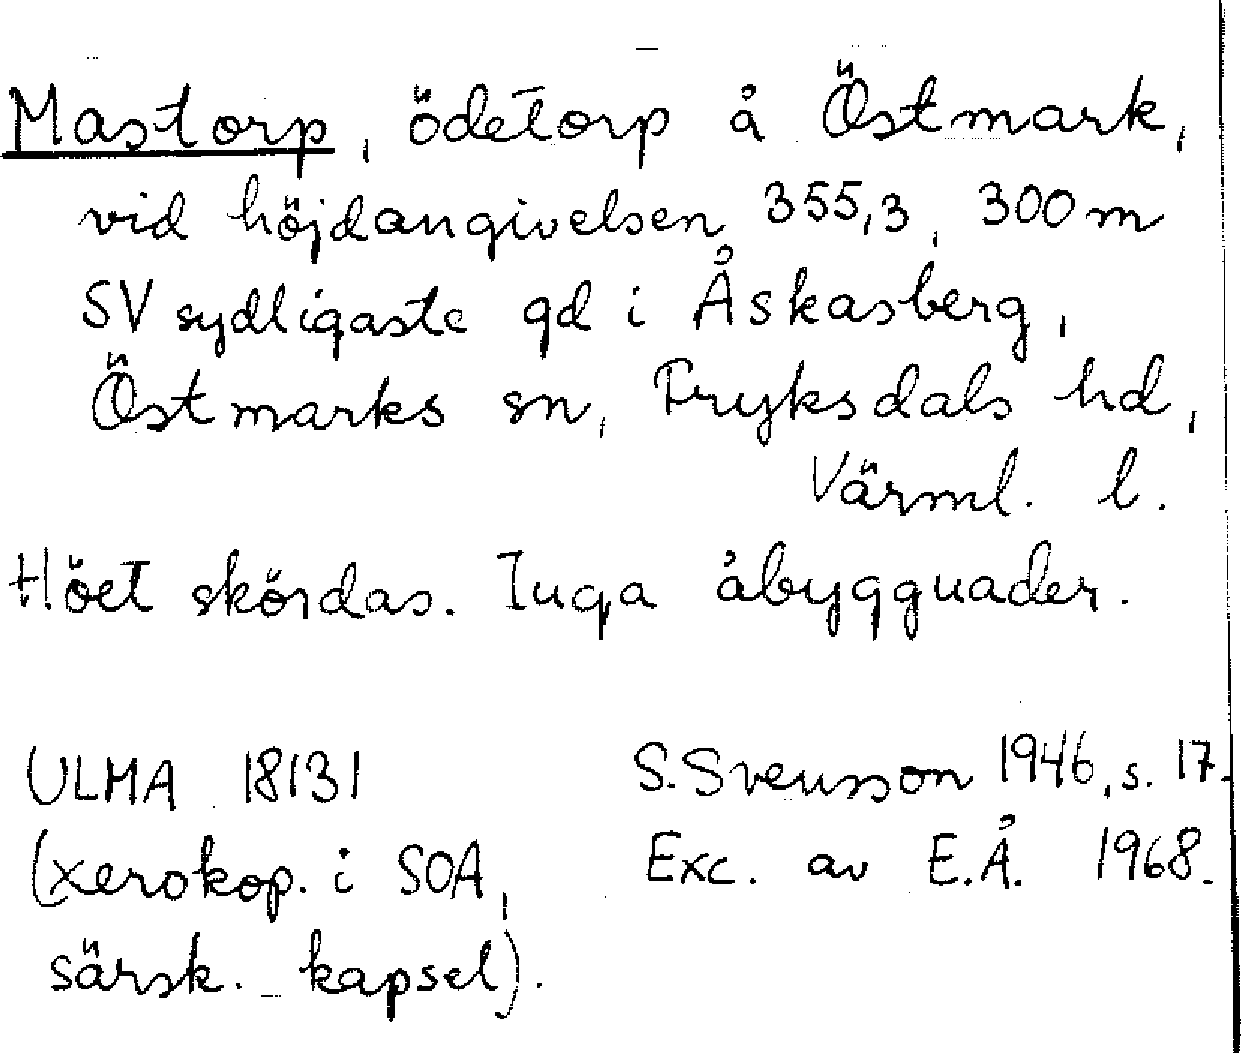 Mastorp, ödetorp å Östmark,
vid höjdangivelsen 355,3, 300 m
SV sydligaste gd i Åskasberg,
Östmarks sn, Fryksdals hd,
Värml. l.
Höet skördas. Inga åbyggnader.
ULMA 18131
(xerokop. i SOA,
särsk. kapsel).
S. Svensson 1946, s. 17.
Exc. av E.Å. 1968.